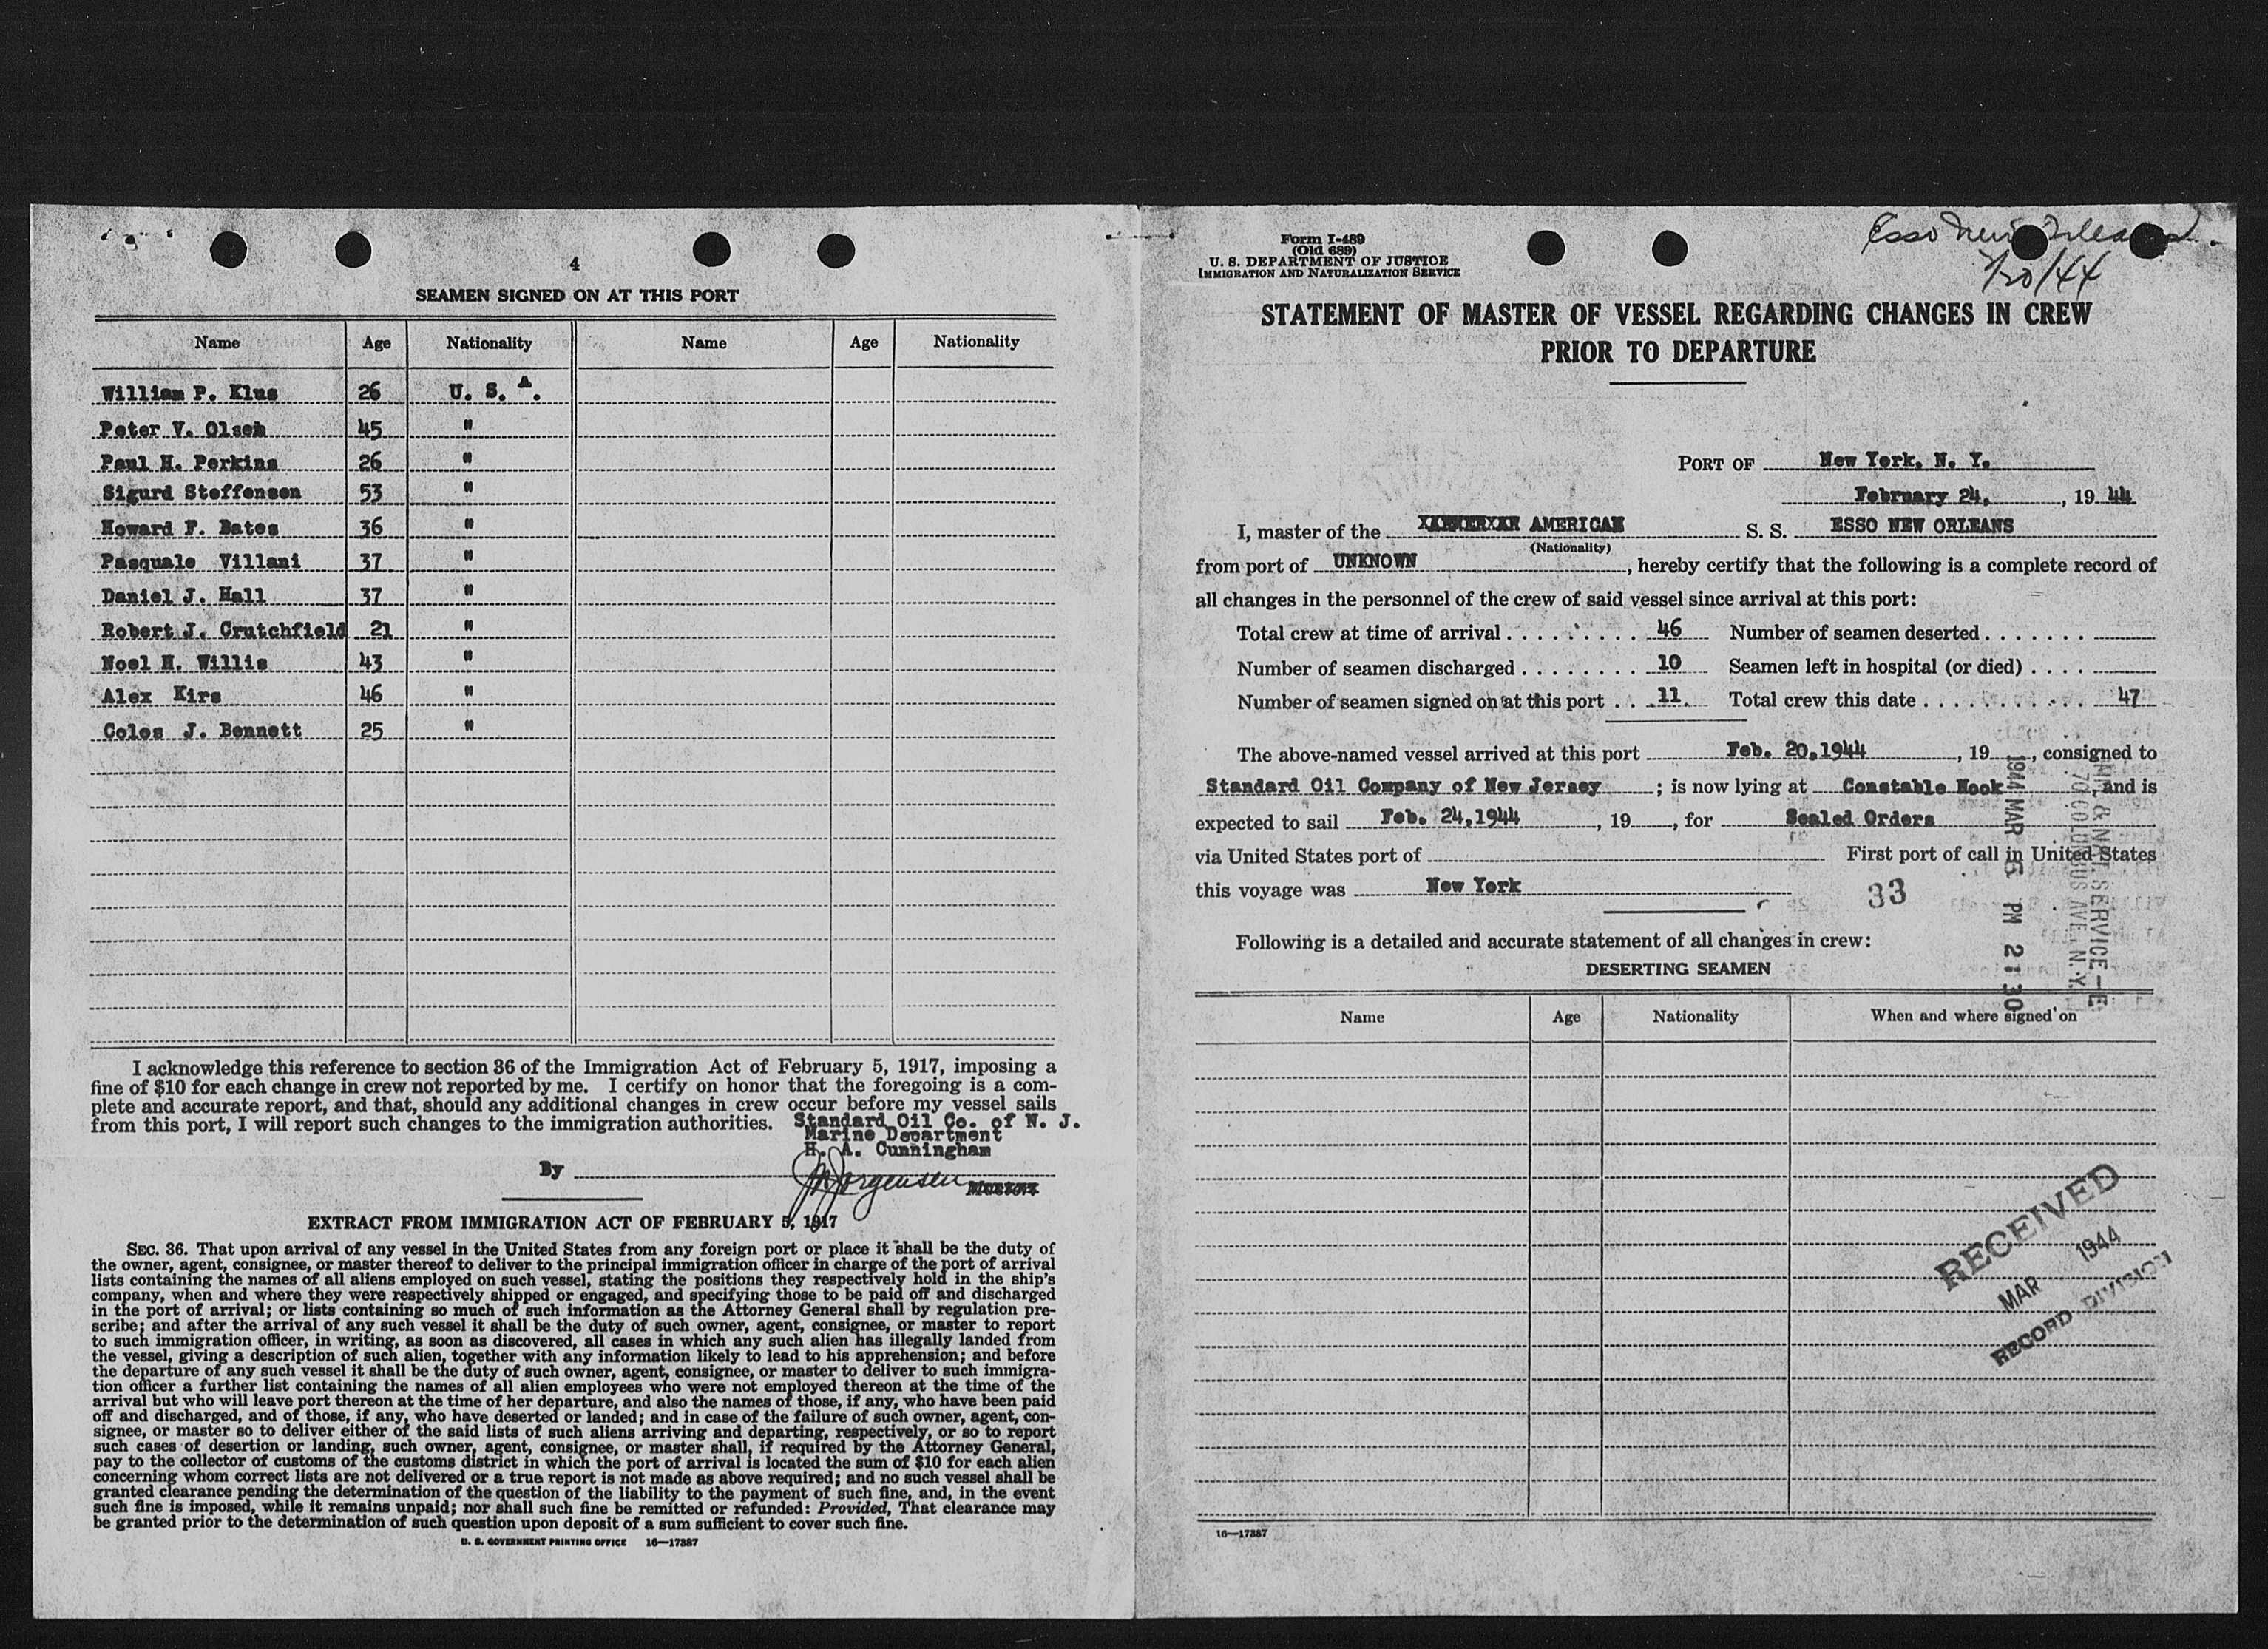 4
SEAMEN SIGNED ON AT THIS PORT
Name Age Nationality Name Age Nationality
William P. Klus 26 U. S. A.
Peter V. Olsen 45 "
Paul H. Perkins 26 "
Sigurd Steffensen 53 "
Howard F. Bates 36 "
Pasquale Villani 37 "
Daniel J. Hall 37 "
Robert J. Crutchfield 21 "
Noel H. Willis 43 "
Alex Kirs 46 "
Coles J. Bennett 25 "
I acknowledge this reference to section 36 of the Immigration Act of February 5, 1917, imposing a
fine of $10 for each change in crew not reported by me. I certify on honor that the foregoing is a com-
plete and accurate report, and that, should any additional changes in crew occur before my vessel sails
from this port, I will report such changes to the immigration authorities. Standard Oil Co. of N. J.
Marine Department
H. A. Cunningham
By Jorgensen Master
EXTRACT FROM IMMIGRATION ACT OF FEBRUARY 5, 1917
SEC. 36. That upon arrival of any vessel in the United States from any foreign port or place it shall be the duty of
the owner, agent, consignee, or master thereof to deliver to the principal immigration officer in charge of the port of arrival
lists containing the names of all aliens employed on such vessel, stating the positions they respectively hold in the ship's
company, when and where they were respectively shipped or engaged, and specifying those to be paid off and discharged
in the port of arrival; or lists containing so much of such information as the Attorney General shall by regulation pre-
scribe; and after the arrival of any such vessel it shall be the duty of such owner, agent, consignee, or master to report
to such immigration officer, in writing, as soon as discovered, all cases in which any such alien has illegally landed from
the vessel, giving a description of such alien, together with any information likely to lead to his apprehension; and before
the departure of any such vessel it shall be the duty of such owner, agent, consignee, or master to deliver to such immigra-
tion officer a further list containing the names of all alien employees who were not employed thereon at the time of the
arrival but who will leave port thereon at the time of her departure, and also the names of those, if any, who have been paid
off and discharged, and of those, if any, who have deserted or landed; and in case of the failure of such owner, agent, con-
signee, or master so to deliver either of the said lists of such aliens arriving and departing, respectively, or so to report
such cases of desertion or landing, such owner, agent, consignee, or master shall, if required by the Attorney General,
pay to the collector of customs of the customs district in which the port of arrival is located the sum of $10 for each alien
concerning whom correct lists are not delivered or a true report is not made as above required; and no such vessel shall be
granted clearance pending the determination of the question of the liability to the payment of such fine, and, in the event
such fine is imposed, while it remains unpaid; nor shall such fine be remitted or refunded: Provided, That clearance may
be granted prior to the determination of such question upon deposit of a sum sufficient to cover such fine.
U. S. GOVERNMENT PRINTING OFFICE 16—17387
Esso New Orleans
Form I-489
(Old 689)
U. S. DEPARTMENT OF JUSTICE
IMMIGRATION AND NATURALIZATION SERVICE
STATEMENT OF MASTER OF VESSEL REGARDING CHANGES IN CREW
PRIOR TO DEPARTURE
PORT OF New York, N. Y.
February 24, , 19 44
I, master of the AMERICAN S. S. ESSO NEW ORLEANS
(Nationality)
from port of UNKNOWN , hereby certify that the following is a complete record of
all changes in the personnel of the crew of said vessel since arrival at this port:
Total crew at time of arrival 46 Number of seamen deserted
Number of seamen discharged 10 Seamen left in hospital (or died)
Number of seamen signed on at this port 11. Total crew this date 47
The above-named vessel arrived at this port Feb. 20,1944 , 19 , consigned to
Standard Oil Company of New Jersey ; is now lying at Constable Hook , and is
expected to sail Feb. 24,1944 , 19 , for Sealed Orders
via United States port of First port of call in United States
this voyage was New York
33
1944 MAR PM 2:30
& NAT. SERVICE—E
70 COLUMBUS AVE. N. Y.
Following is a detailed and accurate statement of all changes in crew:
DESERTING SEAMEN
Name Age Nationality When and where signed on
RECEIVED
MAR 1944
RECORD DIVISION
16—17387